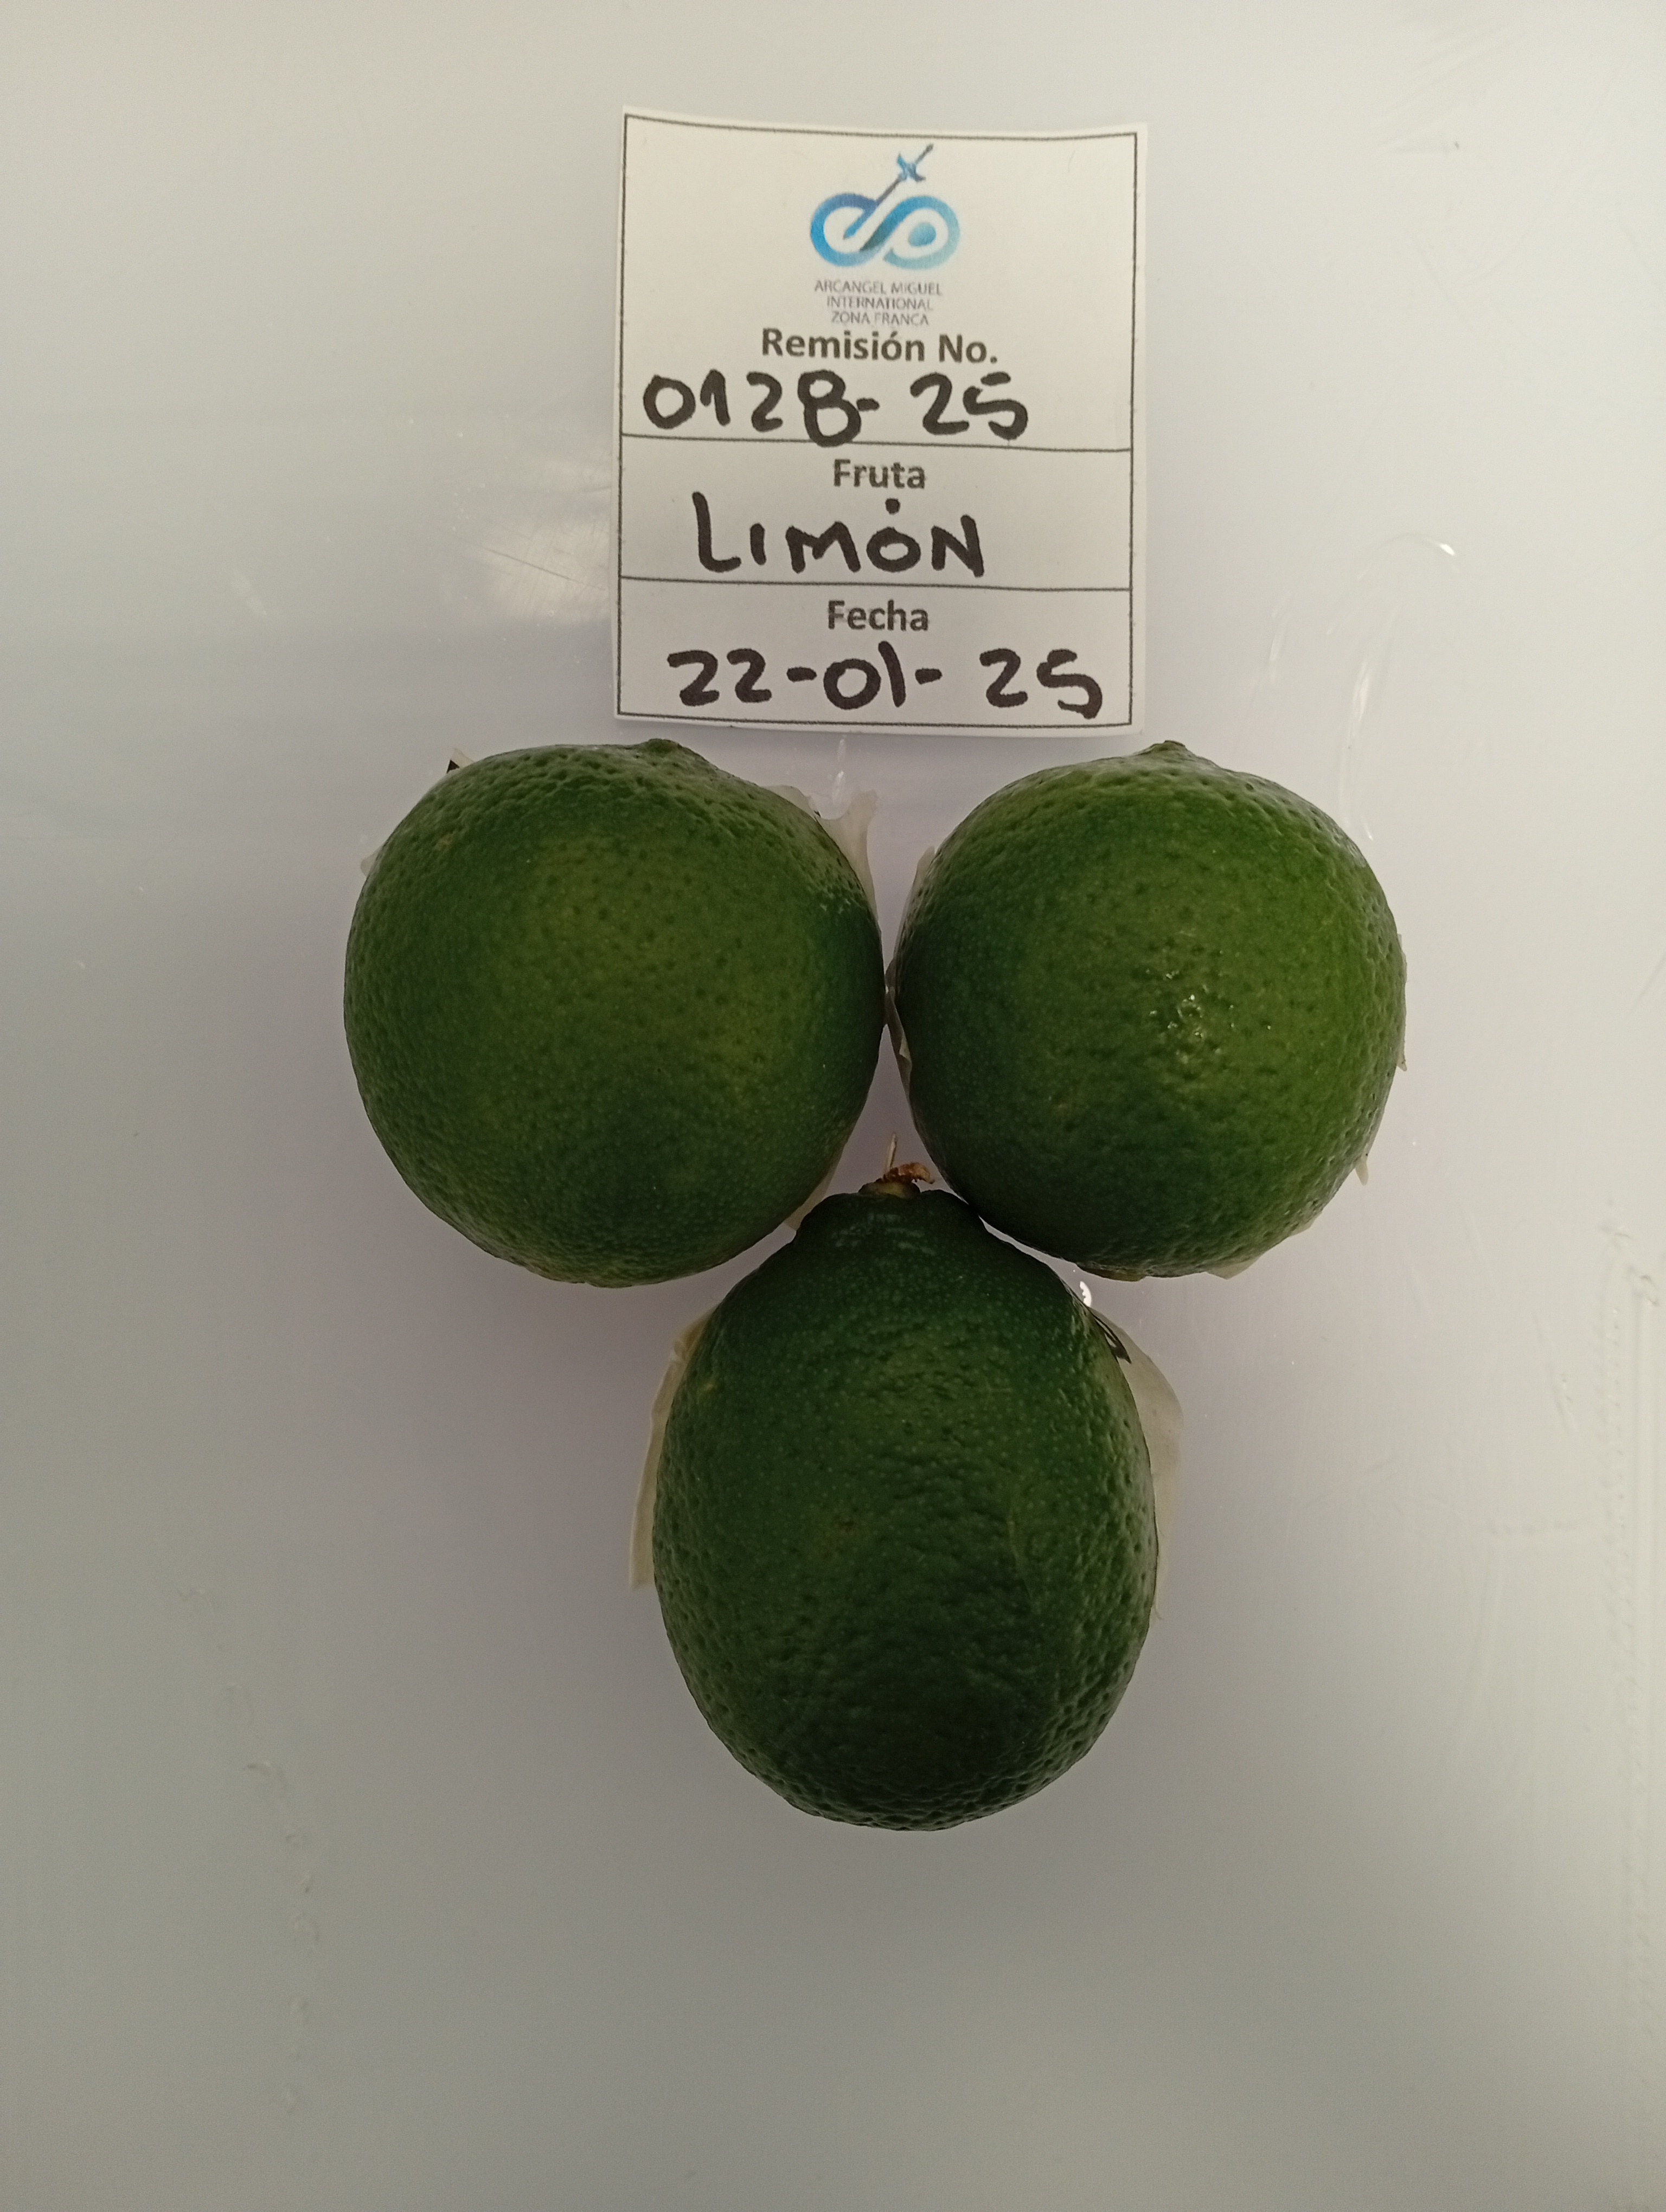 ARCANGEL MIGUEL
INTERNATIONAL
ZONA FRANCA
Remisión No.
0128-25
Fruta
LIMÓN
Fecha
22-01-25